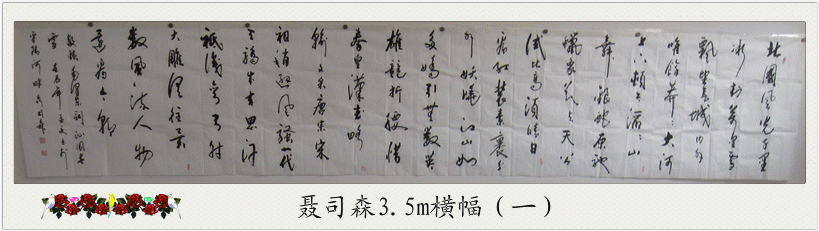 北國風光千里
冰封萬里雪
飘望長城内外
唯馀莽〻大河
上下頓失滔〻山
舞銀蛇原馳
蠟象欲与天公
试比高須晴日
看红装素裹分
外妖娆江山如
此多嬌引無數英
雄競折腰惜
秦皇漢武略
输文采唐宗宋
祖稍逊风骚一代
天驕成吉思汗
祇識弯弓射
大雕俱往矣
數風流人物
還看今朝
聂司森3.5m横幅（一）